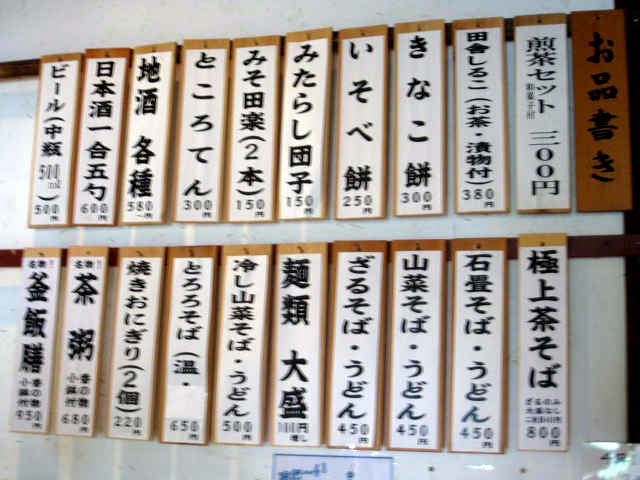 お品書き
煎茶セット 三〇〇円
和菓子付
田舎しるこ(お茶・漬物付)380円
きなこ餅 300円
いそべ餅 250円
みたらし団子 150円
みそ田楽(2本)150円
ところてん 300円
地酒 各種 580円~
日本酒一合五勺 600円
ビール(中瓶 500ml) 500円
極上茶そば 800円
ざるのみ
大盛なし
石畳そば・うどん 450円
山菜そば・うどん 450円
ざるそば・うどん 450円
麺類 大盛 100円増し
冷し山菜そば・うどん 500円
とろろそば(温・ 650円
焼きおにぎり(2個)220円
名物!
茶粥 680円
香の物
小鉢付
名物!
釜飯膳 950円
香の物
小鉢付